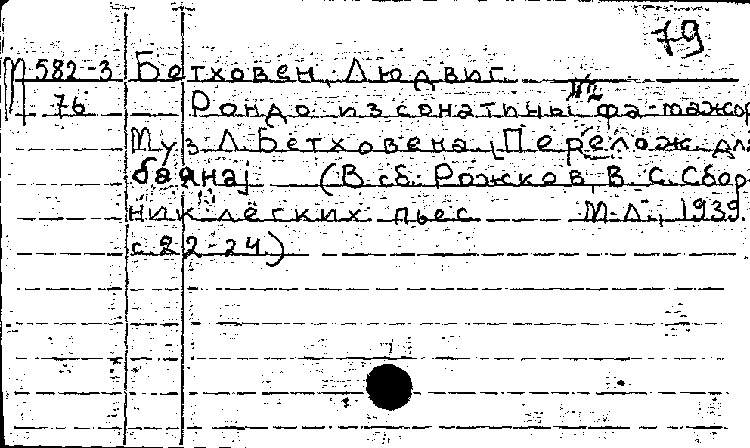 79
М 582-3 Бетховен, Людвиг
76 Рондо из сонатины №2 фа-мажор
Муз. Л. Бетховена [Перелож. для
баяна] (В сб.: Рожков, В. С. Сбор-
ник лёгких пьес М.-Л., 1939
с. 22-24.)